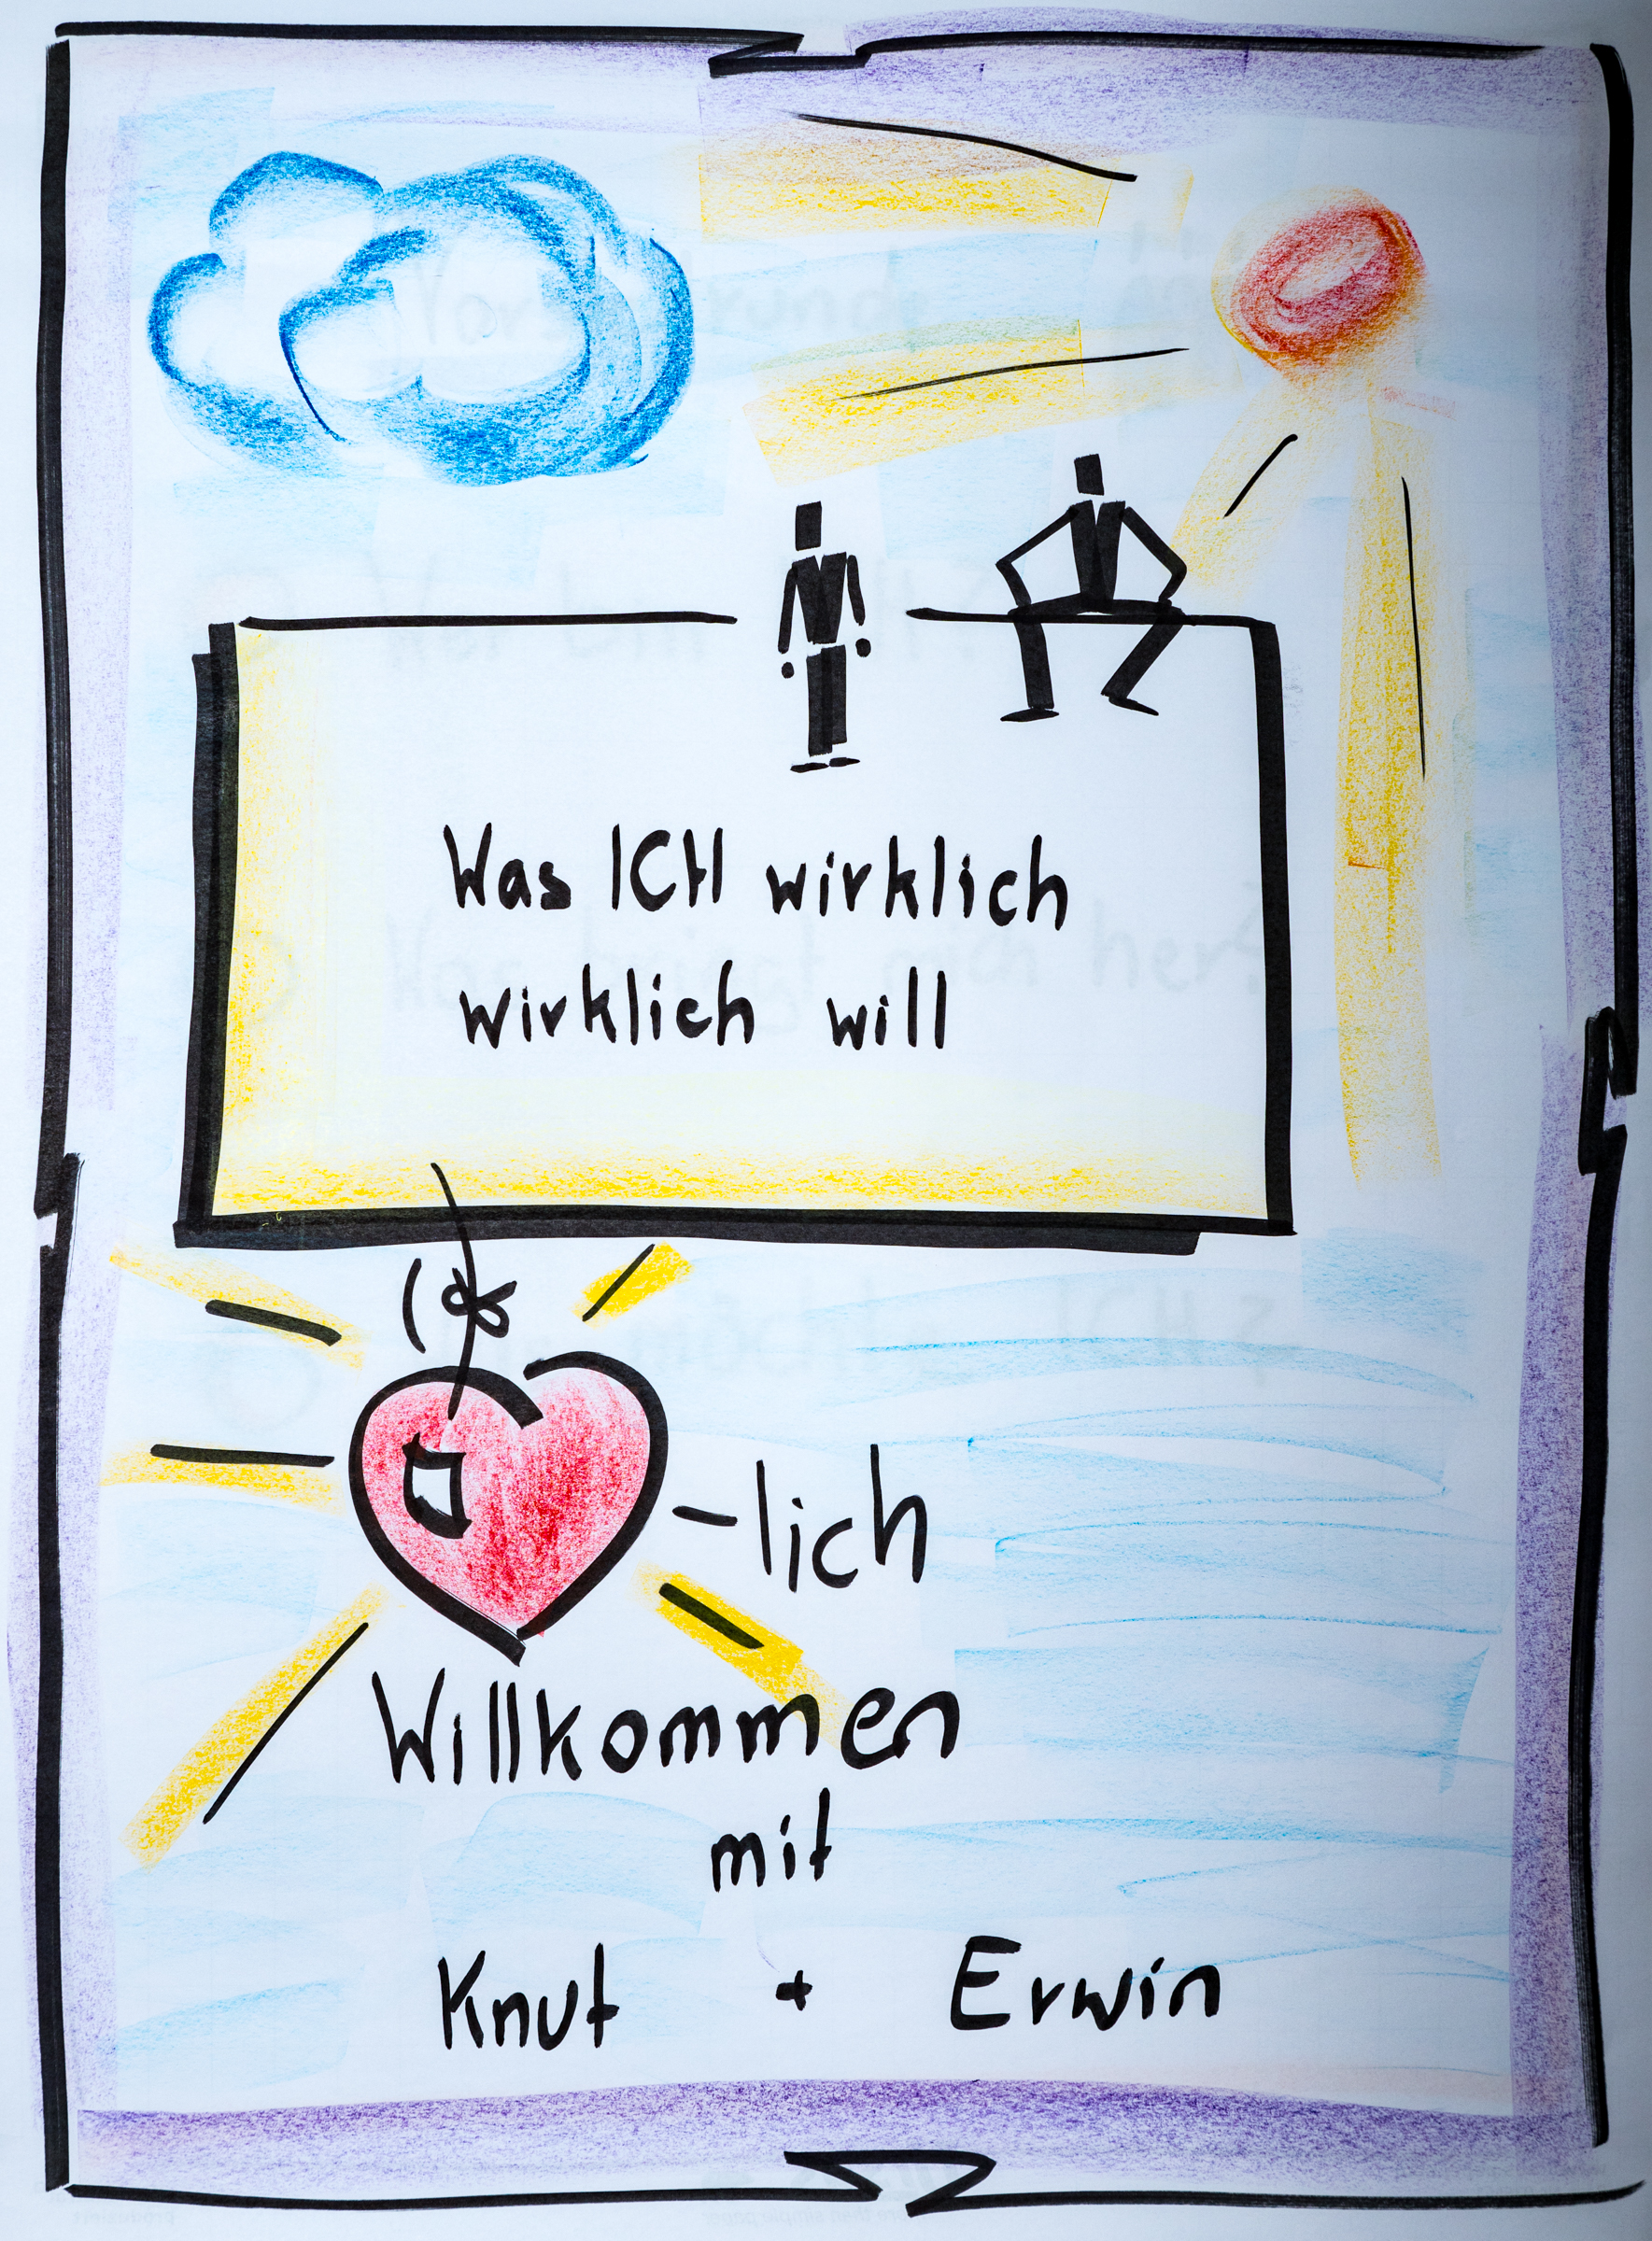 Was ICH wirklich
wirklich will
-lich
Willkommen
mit
Knut + Erwin